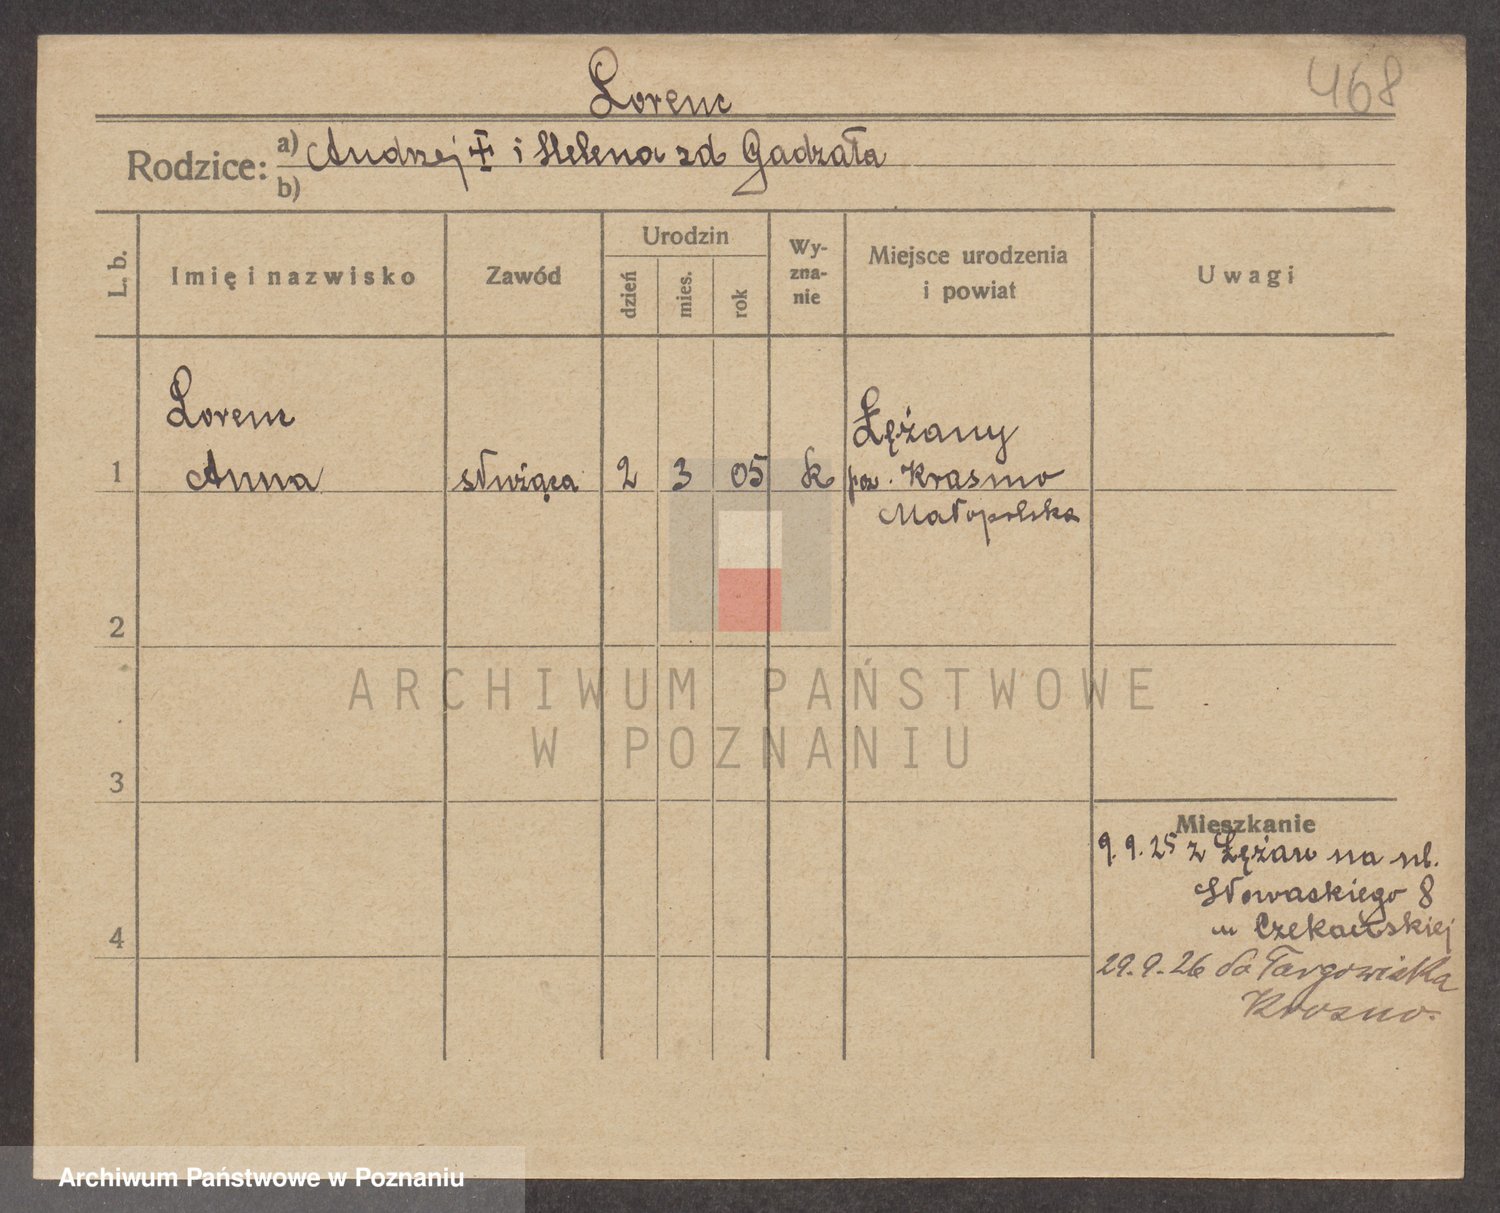 468
Lorenc
Rodzice: a) Andrzej ‡ i Helena zd Gadzała
b)
L. b.
Imię i nazwisko
Zawód
Urodzin
dzień
mies.
rok
Wy-
zna-
nie
Miejsce urodzenia
i powiat
Uwagi
Lorenc
Anna
1
służąca
2
3
05
k
Łężany
pow. Krosno
Małopolska
2
3
4
Mieszkanie
9.9.25 z Łężan na ul.
Słowackiego 8
u
29.9.26 do Targowiska
Krosno.
ARCHIWUM PAŃSTWOWE
W POZNANIU
Archiwum Państwowe w Poznaniu